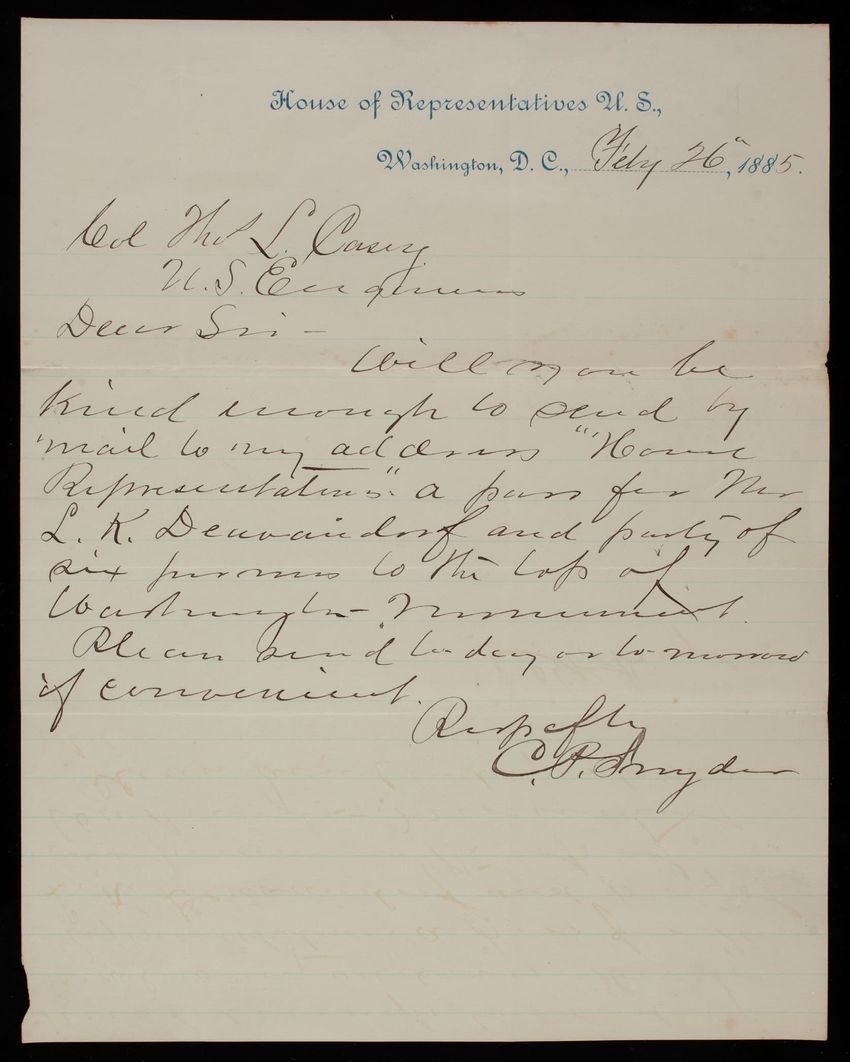 House of Representatives U. S.,
Washington, D. C., Feby 26", 1885.
Col Thos L. Casey
U. S. Engineers
Dear Sir -
Will you be
kind enough to send by
mail to my address "House
Representatives" a pass for Mr
L. K. and party of
six persons to the top of
Washington Monument.
Please send to-day or to-morrow
if convenient.
Respcfly
C. R. Snyder